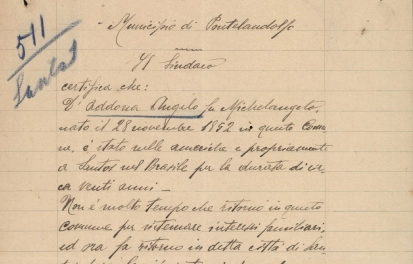 511
Santos
Municipio di Pontelandolfo
Il Sindaco
certifica che:
D'Addona Angelo fu Michelangelo,
nato il 28 novembre 1852 in questo Comu-
ne, è stato nelle americhe e propriamente
a Santos nel Brasile per la durata di cir-
ca venti anni —
Non è molto tempo che ritornò in questo
comune per sistemare interessi familiari,
ed ora fa ritorno in detta città di San